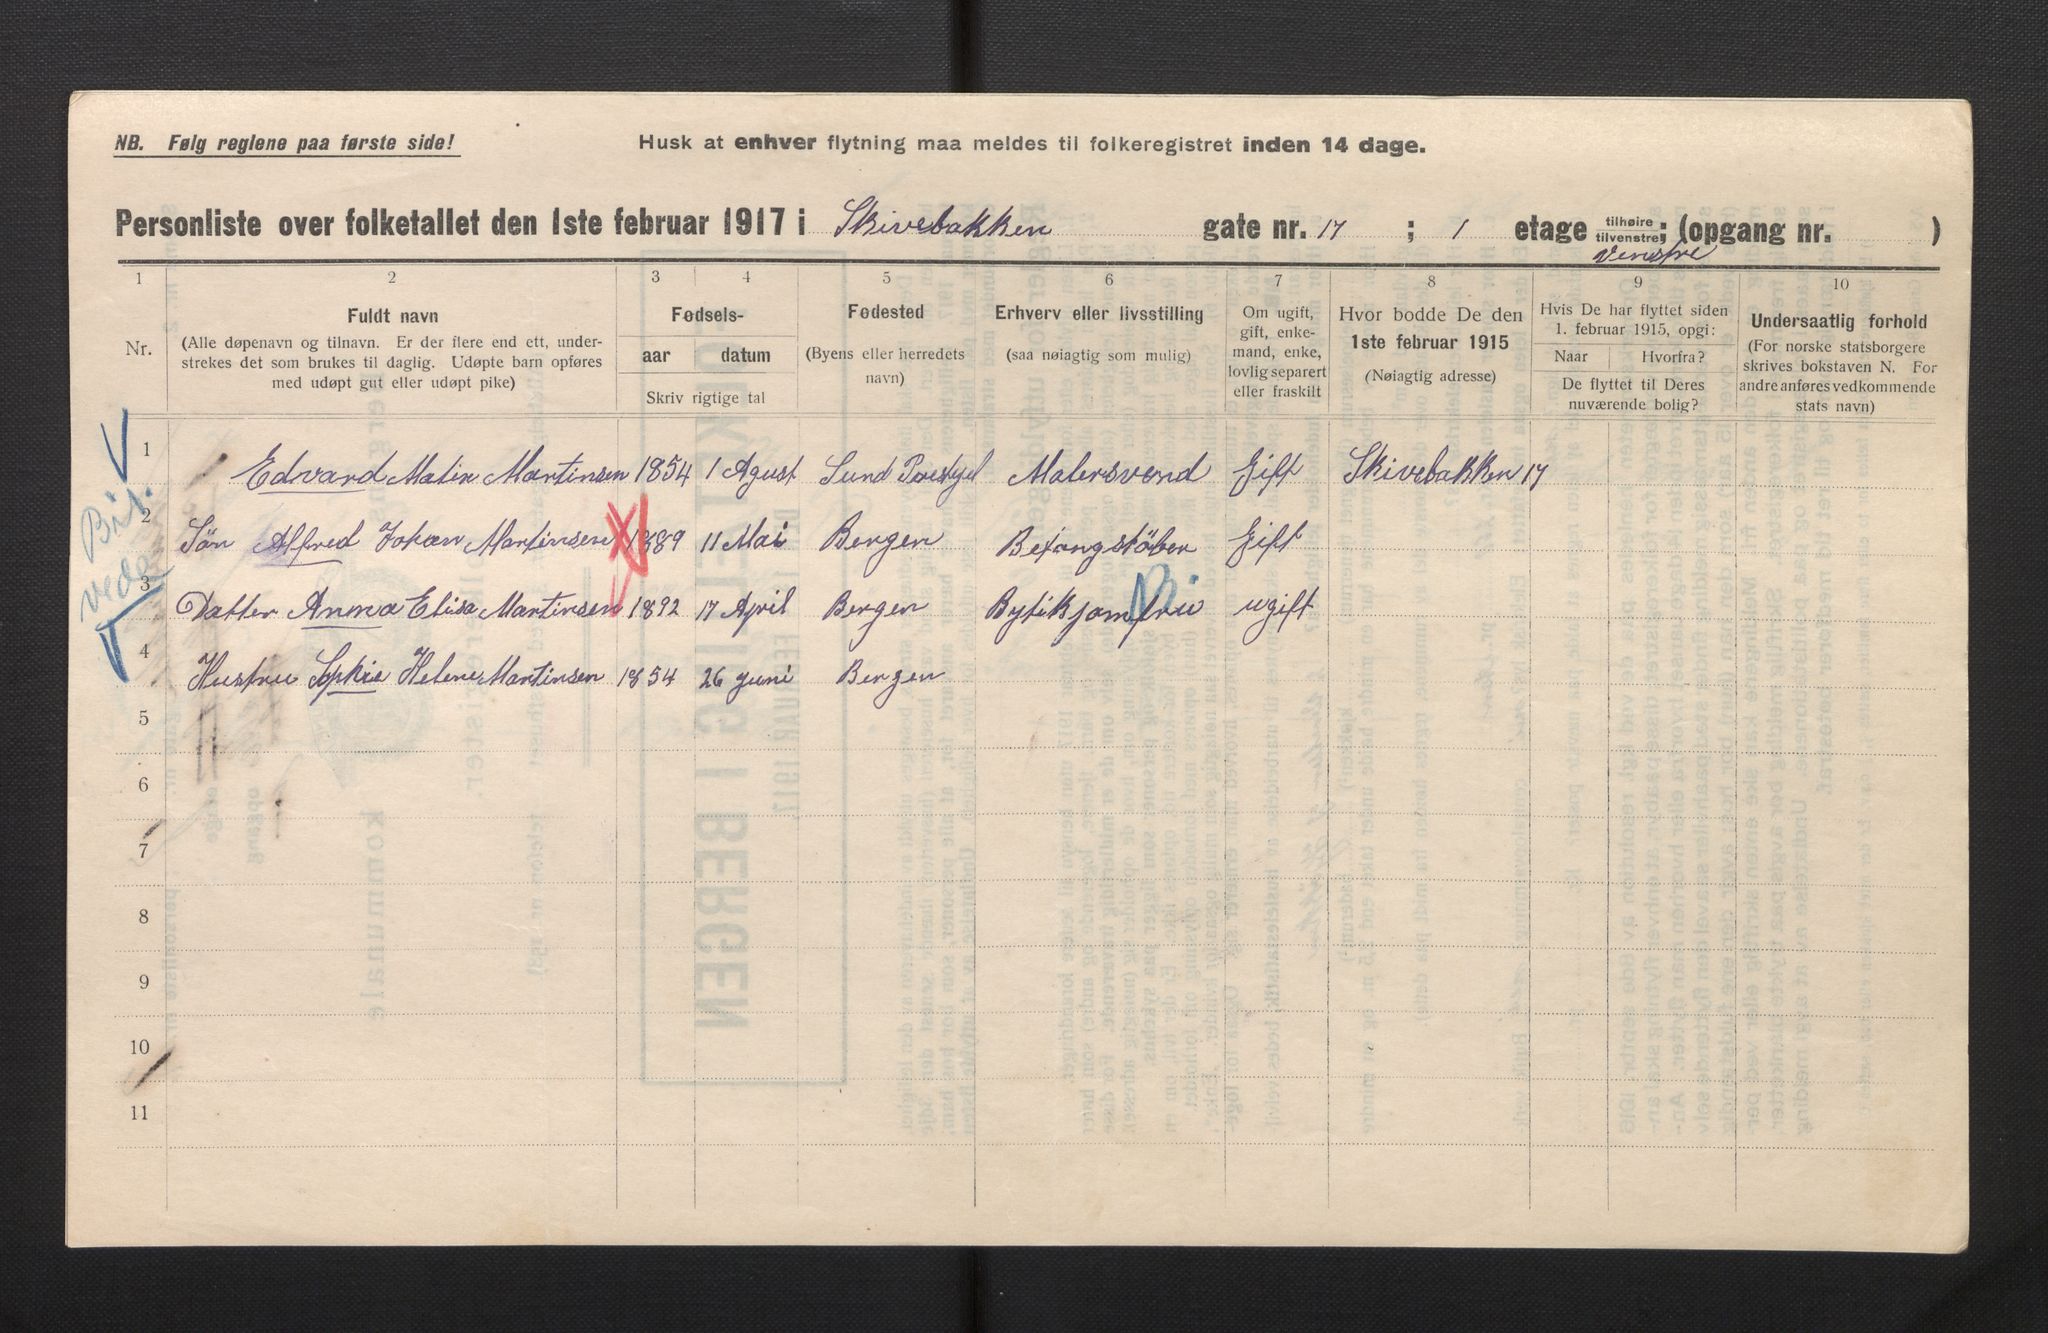 NB. Følg reglene paa første side!
Husk at enhver flytning maa meldes til folkeregistret inden 14 dage.
Personliste over folketallet den 1ste februar 1917 i Skivebakken gate nr. 17 ; 1 etage tilhøire tilvenstre; (opgang nr. )
Venstre
1 2 3 4 5 6 7 8 9 10
Nr.
Fuldt navn
(Alle døpenavn og tilnavn. Er der flere end ett, under-
strekes det som brukes til daglig. Udøpte barn opføres
med udøpt gut eller udøpt pike)
Fødsels-
aar datum
Skriv rigtige tal
Fødested
(Byens eller herredets
navn)
Erhverv eller livsstilling
(saa nøiagtig som mulig)
Om ugift,
gift, enke-
mand, enke,
lovlig separert
eller fraskilt
Hvor bodde De den
1ste februar 1915
(Nøiagtig adresse)
Hvis De har flyttet siden
1. februar 1915, opgi:
Naar Hvorfra?
De flyttet til Deres
nuværende bolig?
Undersaatlig forhold
(For norske statsborgere
skrives bokstaven N. For
andre anføres vedkommende
stats navn)
1 Edvard Matin Martinsen 1854 1 Agust Sund Malersvend Gift Skivebakken 17
2 Søn Alfred Johan Martinsen 1889 11 Mai Bergen Betongstöber Gift
3 Datter Anna Elisa Martinsen 1892 17 April Bergen Bytikjomfru ugift
4 Hustru Sophie Helene Martinsen 1854 26 juni Bergen
5
6
7
8
9
10
11